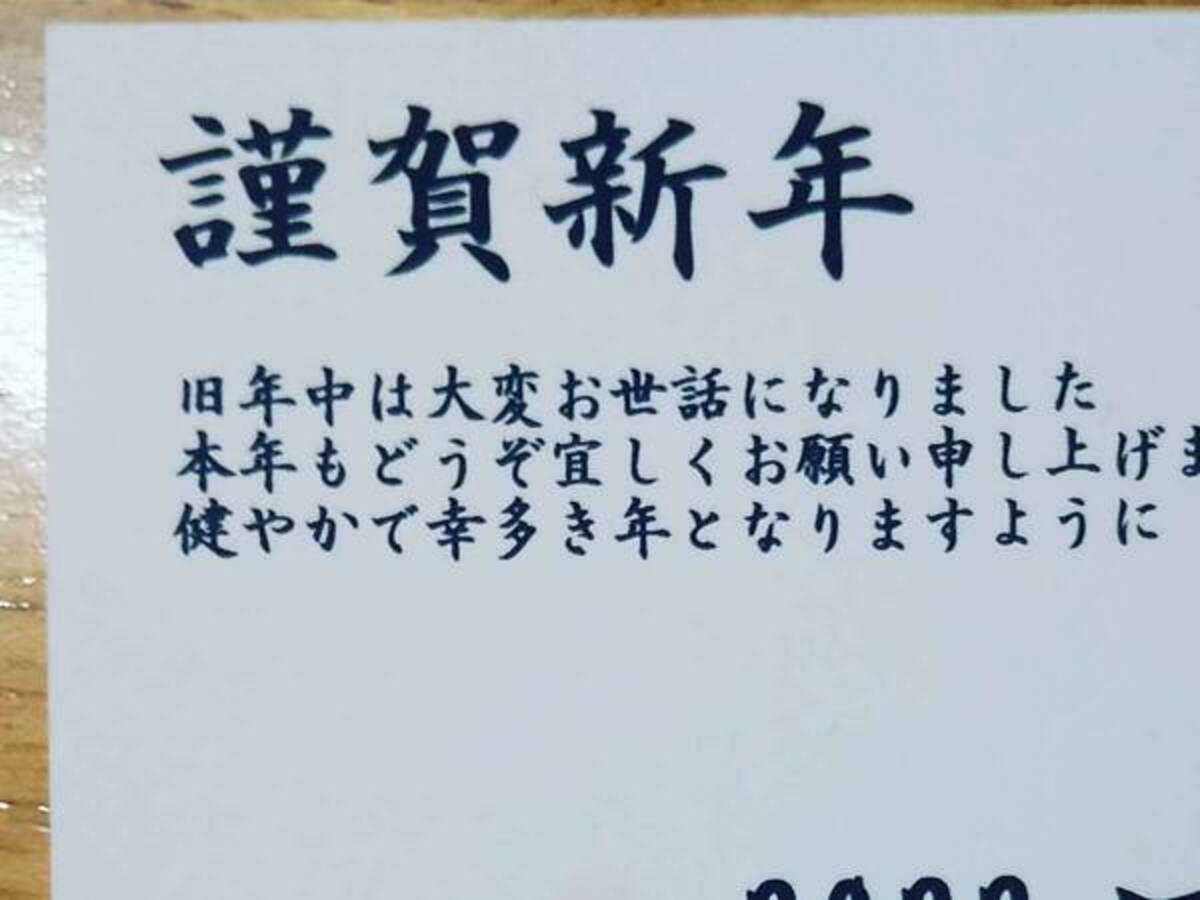 謹賀新年
旧年中は大変お世話になりました
本年もどうぞ宜しくお願い申し上げま
健やかで幸多き年となりますように